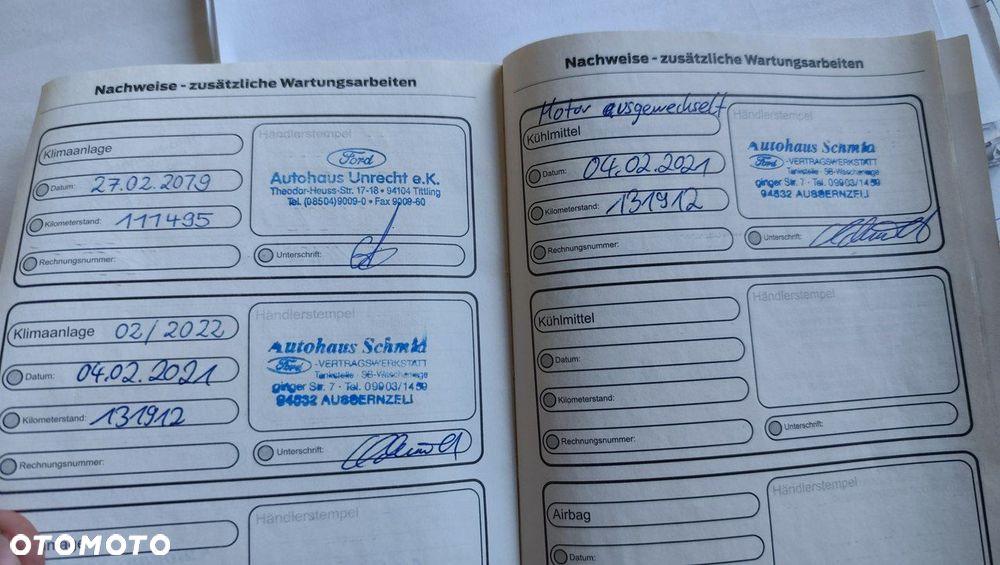 Nachweise - zusätzliche Wartungsarbeiten
Klimaanlage
Datum: 27.02.2019
Kilometerstand: 111495
Rechnungsnummer:
Händlerstempel
Ford
Autohaus Unrecht e.K.
Theodor-Heuss-Str. 17-18 • 94104 Tittling
Tel. (08504)9009-0 • Fax 9009-60
Unterschrift:
Klimaanlage 02/2022
Datum: 04.02.2021
Kilometerstand: 131912
Rechnungsnummer:
Händlerstempel
Autohaus Schmid
Ford -VERTRAGSWERKSTATT
Tankstelle · SB-Waschanlage
ginger Str. 7 · Tel. 09903/1459
94532 AUSSERNZELL
Unterschrift:
Händlerstempel
Nachweise - zusätzliche Wartungsarbeiten
Motor ausgewechselt
Kühlmittel
Datum: 04.02.2021
Kilometerstand: 131912
Rechnungsnummer:
Händlerstempel
Autohaus Schmid
Ford -VERTRAGSWERKSTATT
Tankstelle · SB-Waschanlage
ginger Str. 7 · Tel. 09903/1459
94532 AUSSERNZELL
Unterschrift:
Kühlmittel
Datum:
Kilometerstand:
Rechnungsnummer:
Händlerstempel
Unterschrift:
Airbag
Datum:
Händlerstempel
OTOMOTO